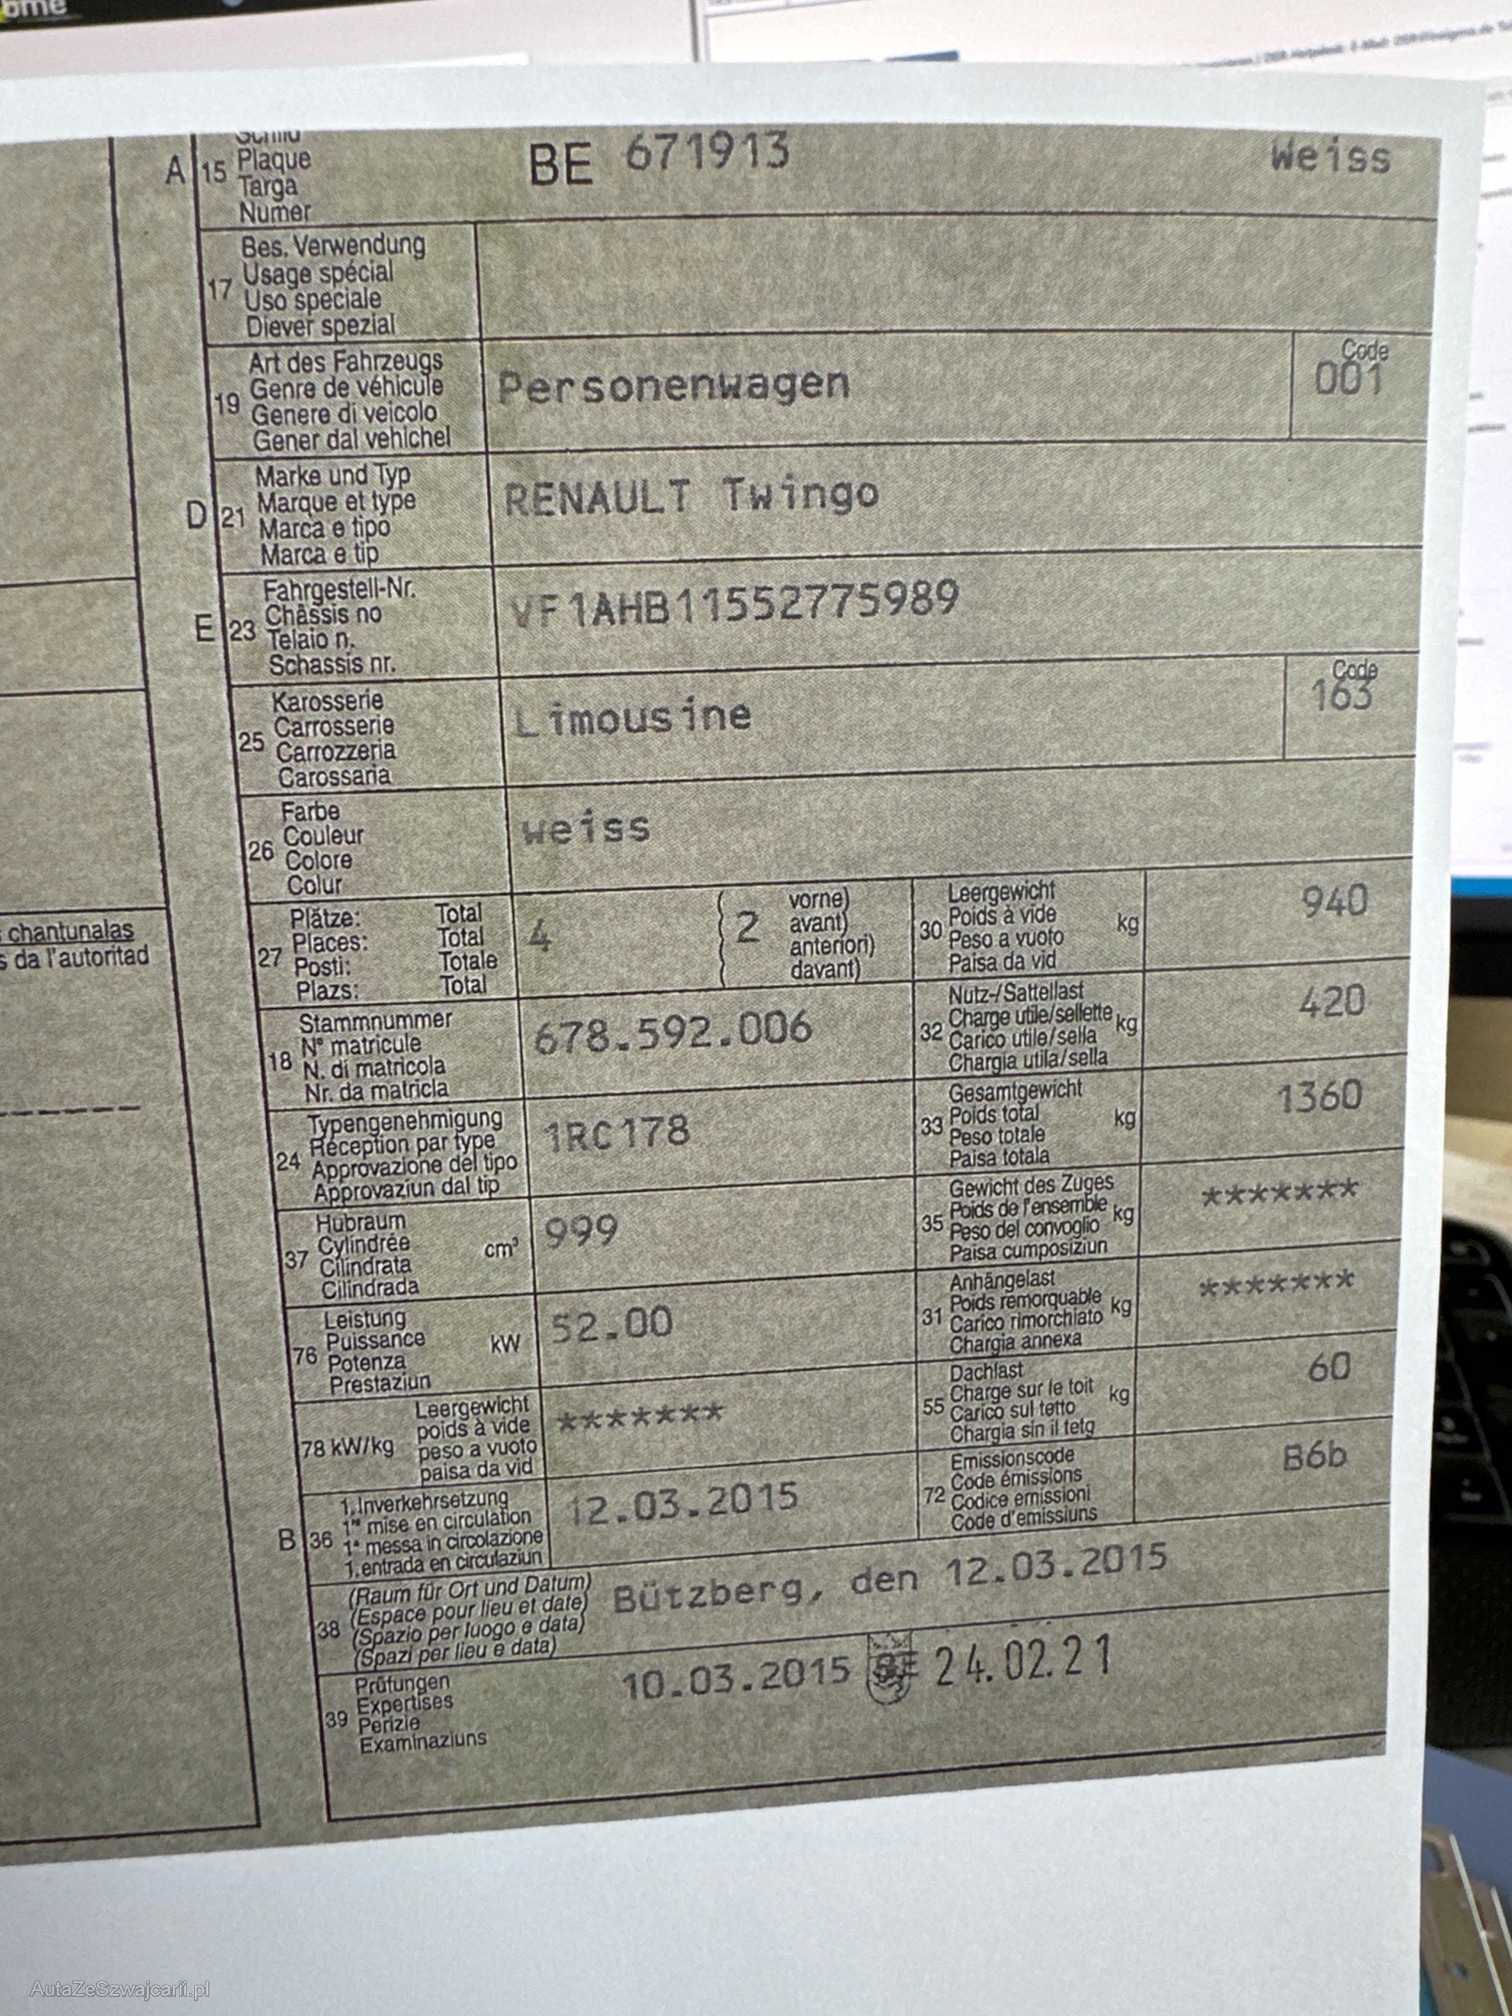 ome
A 15 Schild
Plaque
Targa
Numer
BE 671913 Weiss
17 Bes. Verwendung
Usage spécial
Uso speciale
Diever spezial
19 Art des Fahrzeugs
Genre de véhicule
Genere di veicolo
Gener dal vehichel
Personenwagen
Code
001
D 21 Marke und Typ
Marque et type
Marca e tipo
Marca e tip
RENAULT Twingo
E 23 Fahrgestell-Nr.
Châssis no
Telaio n.
Schassis nr.
VF1AHB11552775989
25 Karosserie
Carrosserie
Carrozzeria
Carossaria
Limousine
Code
163
26 Farbe
Couleur
Colore
Colur
weiss
27 Plätze: Total
Places: Total
Posti: Totale
Plazs: Total
4
2
vorne)
avant)
anteriori)
davant)
30 Leergewicht
Poids à vide
Peso a vuoto
Paisa da vid
kg
940
chantunalas
s da l'autoritad
18 Stammnummer
N° matricule
N. di matricola
Nr. da matricla
678.592.006
32 Nutz-/Sattellast
Charge utile/sellette
Carico utile/sella
Chargia utila/sella
kg
420
24 Typengenehmigung
Réception par type
Approvazione del tipo
Approvaziun dal tip
1RC178
33 Gesamtgewicht
Poids total
Peso totale
Paisa totala
kg
1360
37 Hubraum
Cylindrée
Cilindrata
Cilindrada
cm³
999
35 Gewicht des Zuges
Poids de l'ensemble
Peso del convoglio
Paisa cumposiziun
kg
*******
76 Leistung
Puissance
Potenza
Prestaziun
kW
52.00
31 Anhängelast
Poids remorquable
Carico rimorchiato
Chargia annexa
kg
*******
78 kW/kg Leergewicht
poids à vide
peso a vuoto
paisa da vid
*******
55 Dachlast
Charge sur le toit
Carico sul tetto
Chargia sin il tetg
kg
60
B 36 1. Inverkehrsetzung
1re mise en circulation
1a messa in circolazione
1. entrada en circulaziun
12.03.2015
72 Emissionscode
Code émissions
Codice emissioni
Code d'emissiuns
B6b
38 (Raum für Ort und Datum)
(Espace pour lieu et date)
(Spazio per luogo e data)
(Spazi per lieu e data)
Bützberg, den 12.03.2015
39 Prüfungen
Expertises
Perizie
Examinaziuns
10.03.2015 BE 24.02.21
AutaZeSzwajcarii.pl